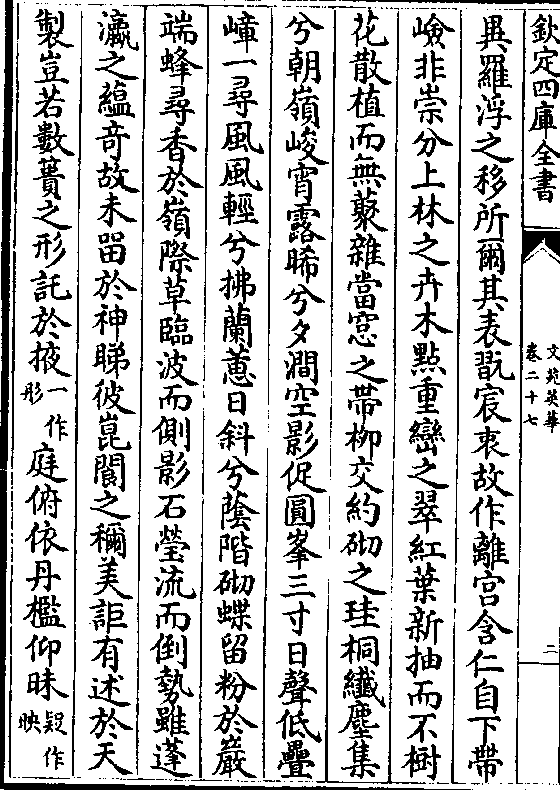 欽定四庫全書
文苑英華
卷二十七
二
異羅浮之移所爾其表翫宸衷故作離宫含仁自下帶
嶮非崇分上林之卉木㸃重巒之翠紅葉新抽而不樹
花散植而無藂雜當窓之帶栁交約砌之珪桐纎塵集
兮朝嶺峻宵露晞兮夕澗空影促圓峯三寸日聲低疊
嶂一尋風風輕兮拂蘭蕙日斜兮䕃階砌蝶留粉於巖
端蜂尋香於嶺際草臨波而側影石瑩流而倒勢雖蓬
瀛之藴竒故未留於神睇彼崑閬之稱美詎有述於天
製豈若數蕢之形託於掖一作彤庭俯依丹檻仰昧疑作映